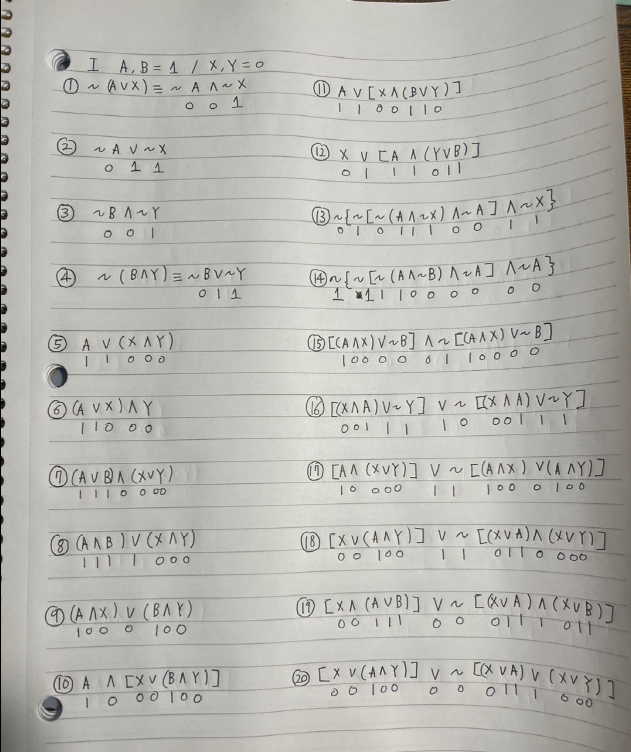 I A, B = 1 / X, Y = 0
① ~ (A∨X) ≡ ~ A ∧ ~ X
0 0 1
② ~ A ∨ ~ X
0 1 1
③ ~ B ∧ ~ Y
0 0 1
④ ~ (B∧Y) ≡ ~ B ∨ ~ Y
0 1 1
⑤ A ∨ (X ∧ Y)
1 1 0 0 0
⑥ (A ∨ X) ∧ Y
1 1 0 0 0
⑦ (A ∨ B) ∧ (X∨Y)
1 1 1 0 0 0 0
⑧ (A ∧ B) ∨ (X ∧ Y)
1 1 1 1 0 0 0
⑨ (A ∧ X) ∨ (B ∧ Y)
1 0 0 0 1 0 0
⑩ A ∧ [X ∨ (B ∧ Y)]
1 0 0 0 1 0 0
⑪ A ∨ [X ∧ (B ∨ Y)]
1 1 0 0 1 1 0
⑫ X ∨ [A ∧ (Y∨B)]
0 1 1 1 0 1 1
⑬ ~{~[~(A∧~X) ∧~A] ∧~X}
0 1 0 1 1 1 0 0 1 1
⑭ ~{~[~(A∧~B) ∧~A] ∧~A}
1 1 1 1 0 0 0 0 0 0
⑮ [(A∧X)∨~B] ∧ ~[(A∧X)∨~B]
1 0 0 0 0 0 1 1 0 0 0 0
⑯ [(X∧A)∨~Y] ∨ ~ [(X∧A)∨~Y]
0 0 1 1 1 1 0 0 0 1 1 1
⑰ [A∧ (X∨Y)] ∨ ~ [(A∧X) ∨(A∧Y)]
1 0 0 0 0 1 1 1 0 0 0 1 0 0
⑱ [X∨(A∧Y)] ∨ ~ [(X∨A)∧(X∨Y)]
0 0 1 0 0 1 1 0 1 1 0 0 0 0
⑲ [X∧ (A∨B)] ∨ ~ [(X∨A) ∧ (X∨B)]
0 0 1 1 1 0 0 0 1 1 1 0 1 1
⑳ [X ∨(A∧Y)] ∨ ~ [(X∨A) ∨ (X∨Y)]
0 0 1 0 0 0 0 0 1 1 1 0 0 0